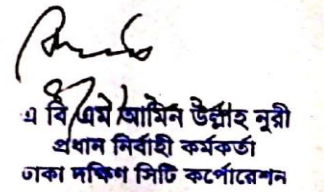 এ বি এম আমিন উল্লাহ নুরী
প্রধান নির্বাহী কর্মকর্তা
ঢাকা দক্ষিণ সিটি কর্পোরেশন